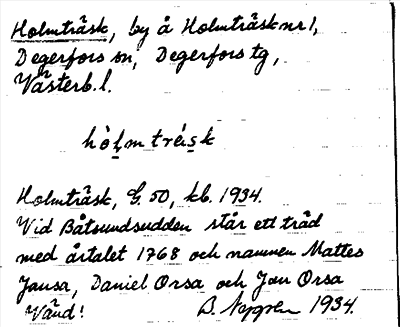 Holmträsk, by å Holmträsk nr 1,
Degerfors sn, Degerfors tg,
Västerb. l.
hòlmtrésk
Holmträsk, G. 50, kb. 1934.
Vid Båtsundsudden står ett träd
med årtalet 1768 och namnen Mattes
Jansa, Daniel Orsa och Jon Orsa
Vänd! B. Nygren 1934.